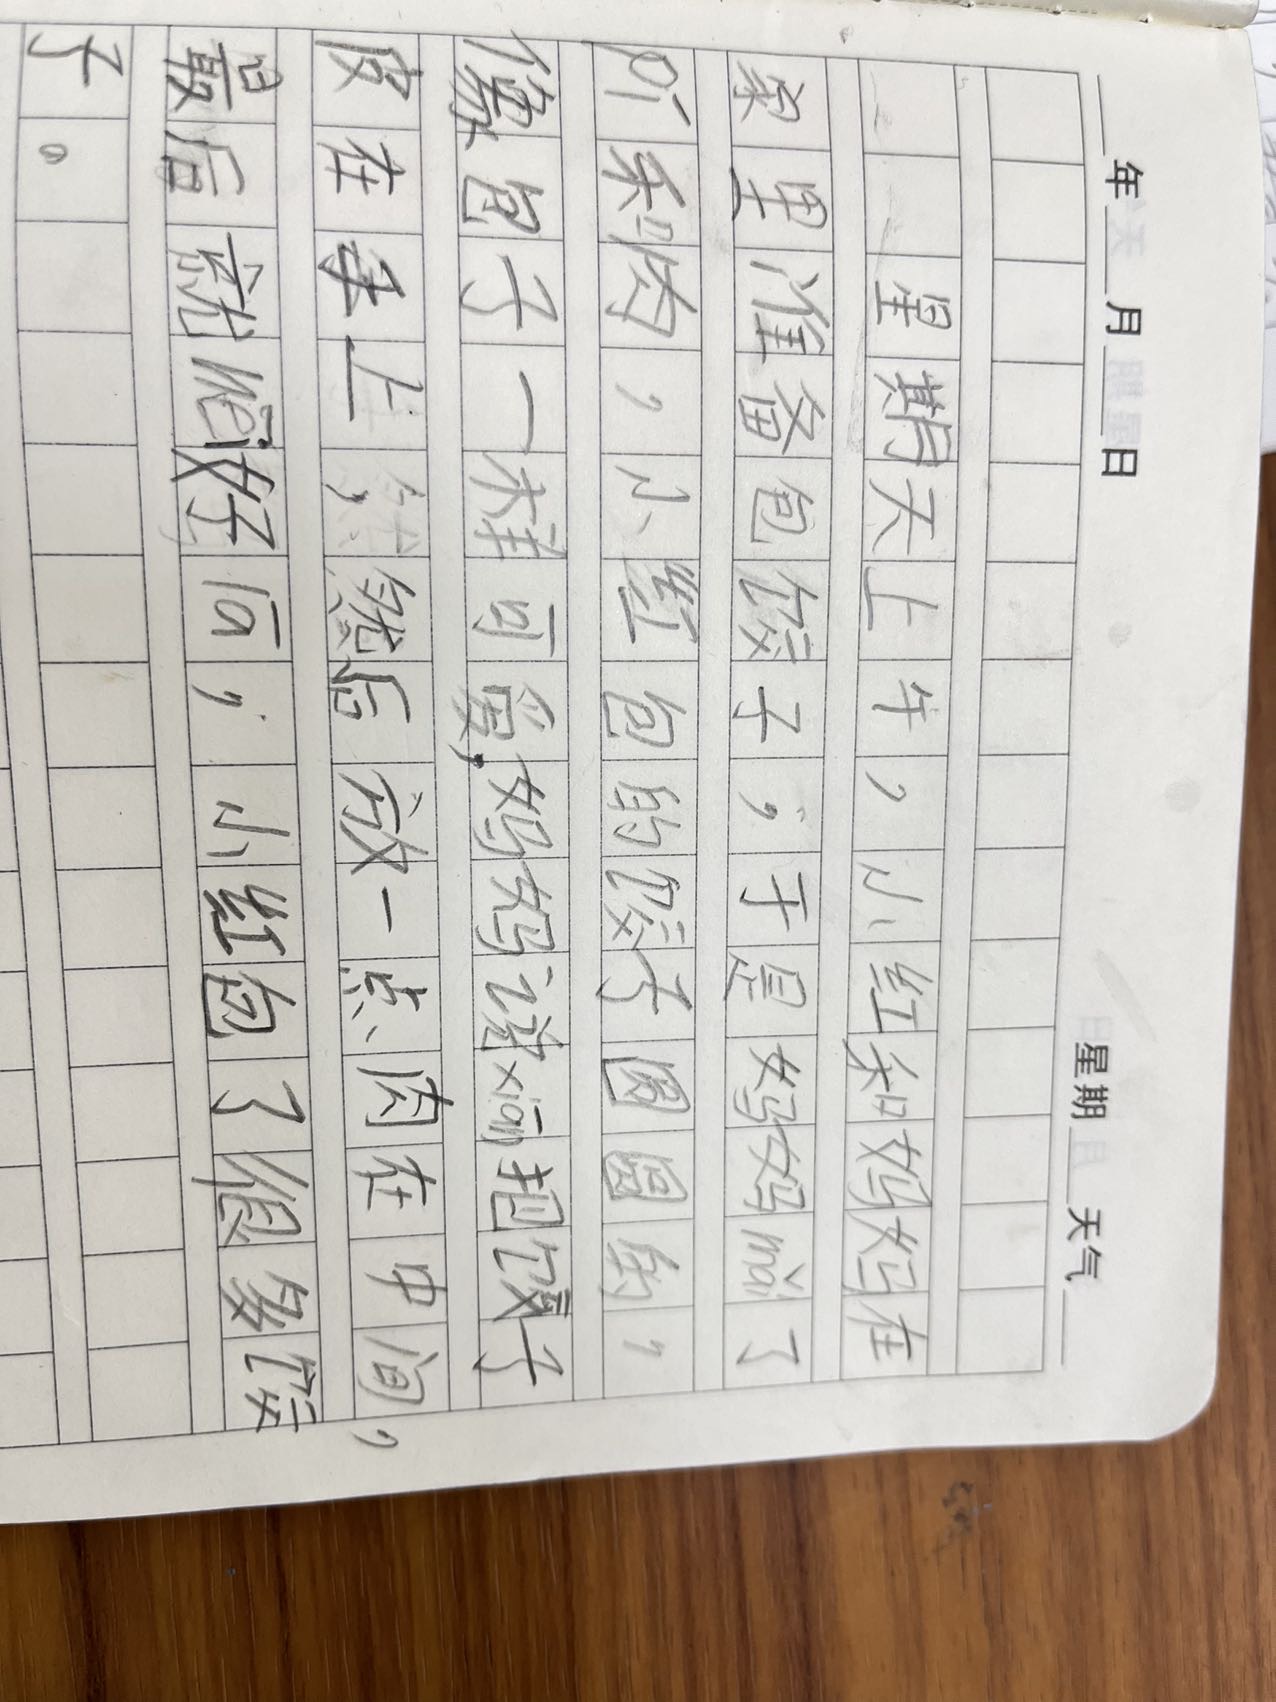 年 月 日 星期 天气
星期天上午，小红和妈妈在
家里准备包饺子，于是妈妈mǎi了
jiǎo肉，小红包的饺子圆圆的，
像包子一样可爱，妈妈说xiān把饺子
皮在手上，然后放一点肉在中间，
最后就niē好后，小红包了很多饺
子。